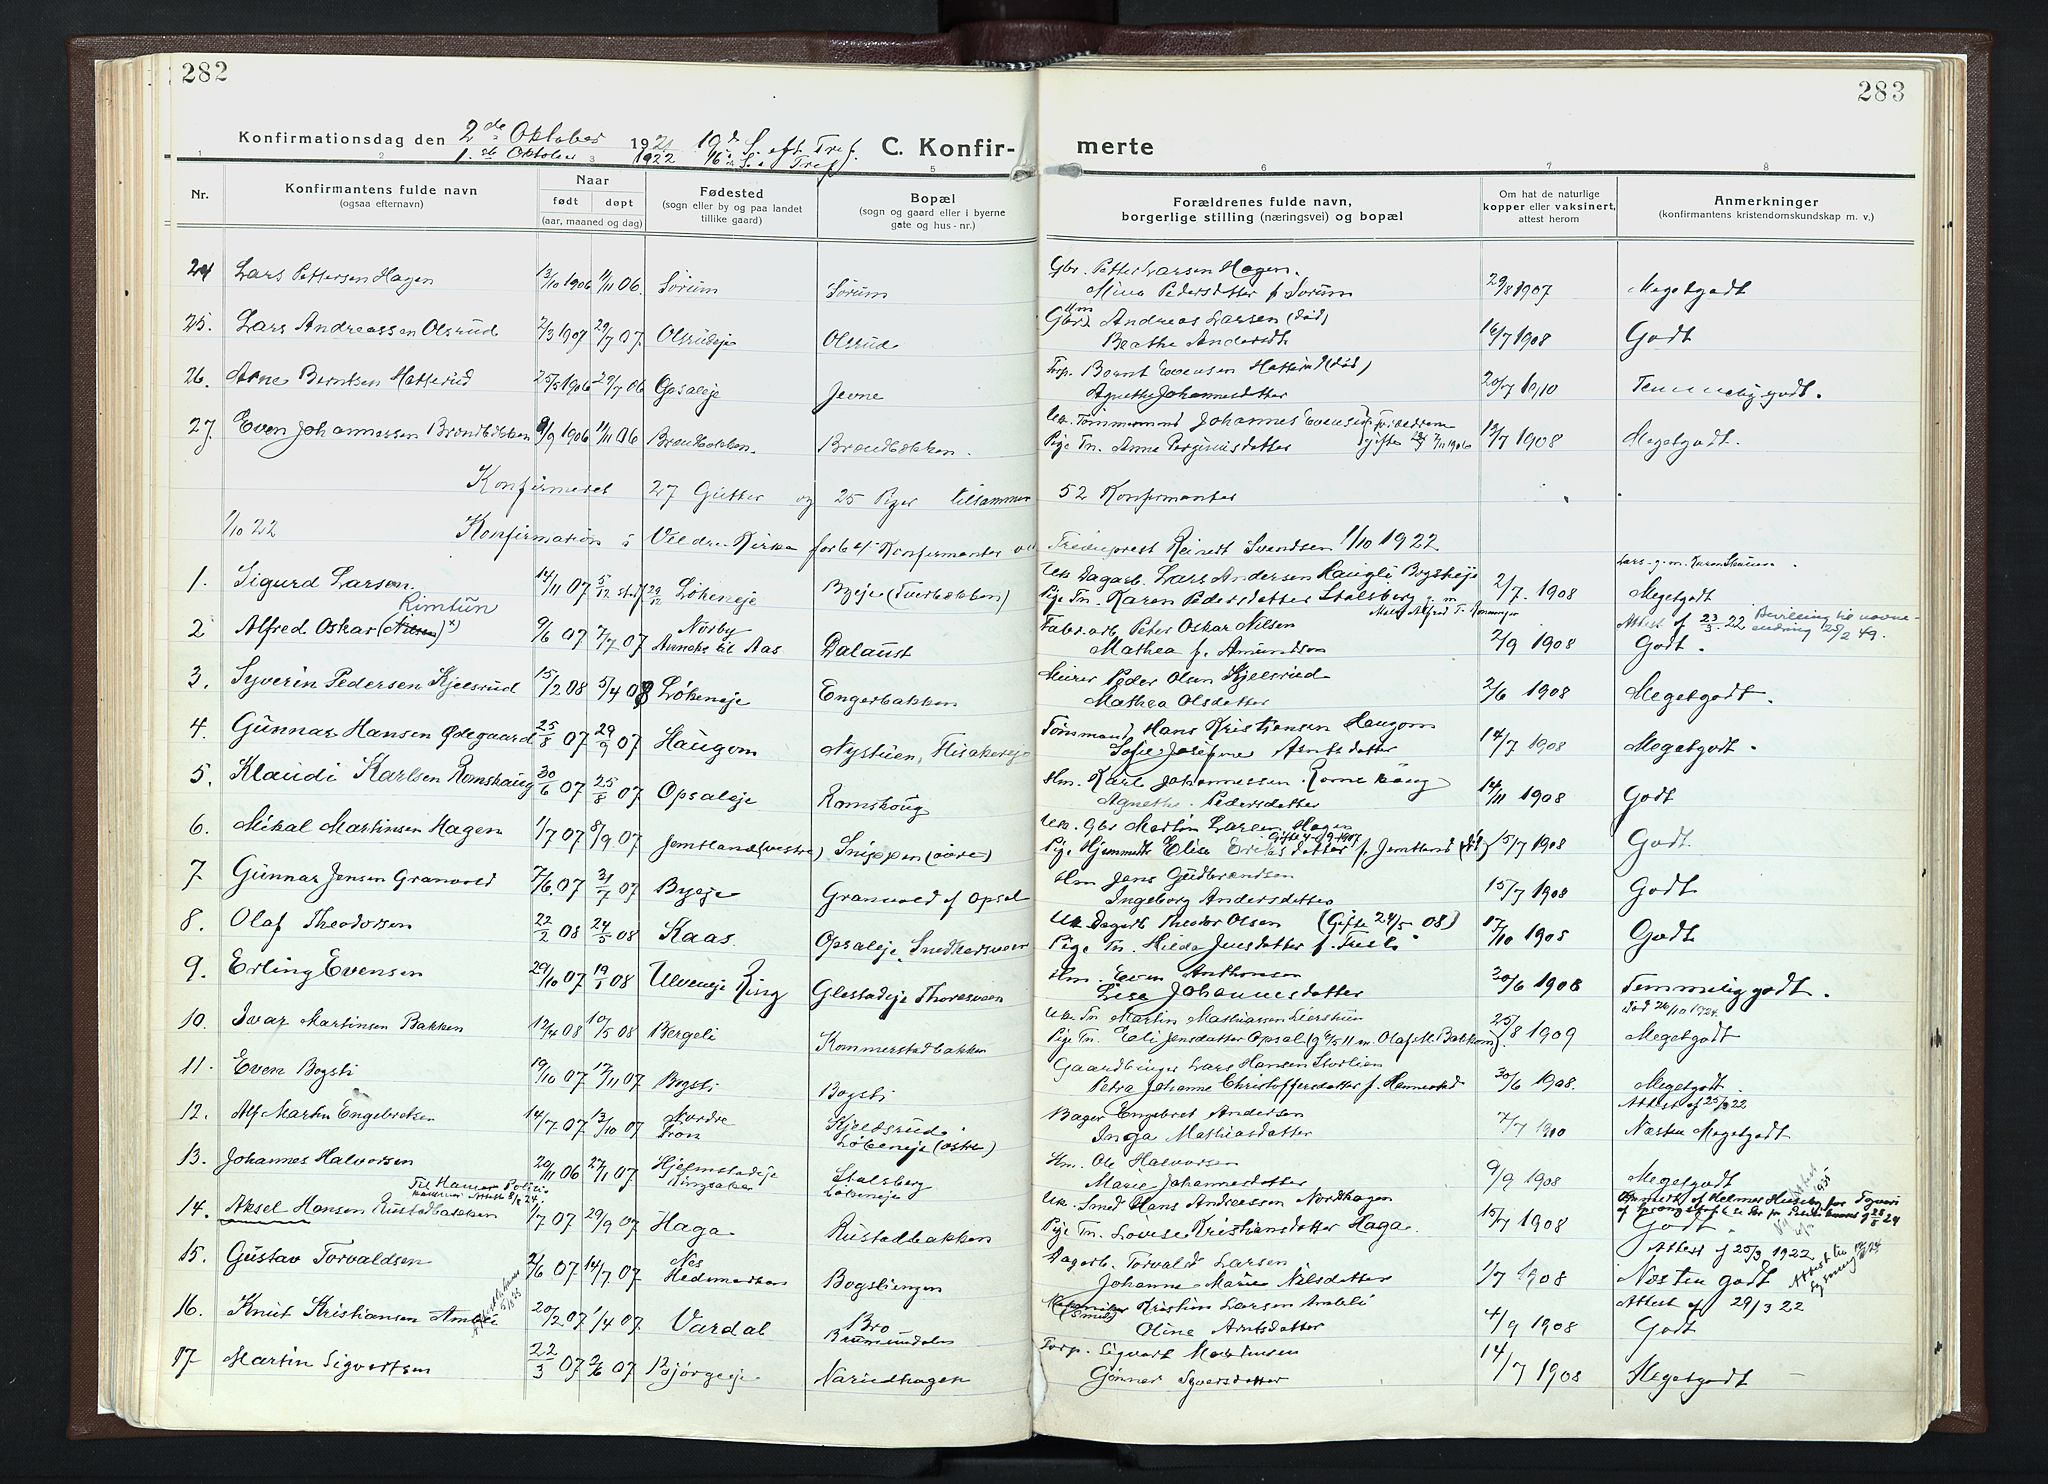 282
283
Konfirmationsdag den 2de Oktober 1921 19d S. eft. Tref.
1.ste Oktober 1922 16de S. e. Tref
C. Konfir-
merte
1 2 3 5 6 7 8
Nr.
Konfirmantens fulde navn
(ogsaa efternavn)
Naar
født døpt
(aar, maaned og dag)
Fødested
(sogn eller by og paa landet
tillike gaard)
Bopæl
(sogn og gaard eller i byerne
gate og hus-nr.)
Forældrenes fulde navn,
borgerlige stilling (næringsvei) og bopæl
Om hat de naturlige
kopper eller vaksinert,
attest herom
Anmerkninger
(konfirmantens kristendomskundskap m. v.)
24 Lars Pettersen Hagen 13/10 1906 11/11 06. Sørum Sørum Gbr. Petter Larsen Hagen. Mina Pedersdatter f Sorum 29/8 1907 Megetgodt
25. Lars Andreassen Olsrud 2/3 1907 29/7 07. Olsrudeje Olsrud Gbr. Andreas Larsen (død) Beathe Andersdtr 16/7 1908 Godt
26. Arne Berntsen Hatterud 25/5 1906 29/7 06 Opsaleje Jevne Torp. Bernt Evensen Hatterud (død) Agnethe Johannesdatter 20/7 1910 Temmelig godt.
27. Even Johannessen Brændbækken 9/9 1906 11/11 06 Brændbækken. Brændbækken. Uk. Tømmermand Johannes Evensen
Pige Tn. Anna Perginusdatter gifte 7/11 1906 12/7 1908 Megetgodt.
Konfirmeret 27 Gutter og 25 Piger tilsammen 52 Konfirmanter
1/10 22 Konfirmation i Veldre Kirke forb af Konfirmanter ved Reinert Svendsen 1/10 1922
Lars g. m. Karen
1. Sigurd Larsen 14/11 07 5/12 29/12 Løkeneje Byeje (Tverbækken) Uk Dagarb. Lars Andersen Haugli Bogstieje
Pige Tn. Karen Pedersdatter Stalsberg 2/7. 1908 Megetgodt
Rimtun
2 Alfred Oskar (Nilsen) x) 9/6 07 7/7 07 Norby Anneks til Aas Dalaust Fabr. arb. Peter Oskar Nilsen
Mathea f. Amundson 2/9 1908 Attest af 23/3. 22 Bevilling til navne-
endring 25/2 49.
Godt.
3. Syverin Pedersen Kjelsrud 15/2 08 5/4 08 Løkeneje Engerbakken Murer Peder Olsen Kjelsrud
Mathea Olsdatter 2/6 1908 Megetgodt.
4. Gunnar Hansen Ødegaard 25/8 07 29/9 07 Haugom Nystuen, Tømmermand Hans Kristiansen Haugom
Sofie Josefine Arntsdatter 14/7 1908 Megetgodt.
5. Klaudi Karlsen Romskaug 30/6 07 25/8 07 Opsaleje Romskoug Hm. Karl Johannessen Romskaug
Agnethe Pedersdatter 14/11 1908 Godt
6. Mikal Martinsen Hagen 1/7 07 8/9 07 Jemtland (vestre) Snippen (øvre) Uk. Gbr Martin Larsen Hagen
Pige Hjemmedt Elise Eriksdatter f. Jemtland 15/7 1908 Godt.
7 Gunnar Jensen Granvold 7/6. 07 21/7 07 Byeje Granvold af Opsal Hm Jens Gudbrandsen
Ingeborg Andersdatter 15/7 1908 Godt
8. Olaf Theodorsen 22/2 08 24/5 08 Kaas. Opsaleje, Snedkersveen Uk Dagarb Theodor Olsen (Gifte 24/5 08)
Pige Tn. Hilda Jensdatter f. 17/10 1908 Godt
9. Erling Evensen 29/10 07 19/1 08 Ulveneje Ring Glestadeje Thoresveen Hm. Even Anthonsen
Lise Johannesdatter 30/6 1908 Temmelig godt.
10. Ivar Martinsen Bakken 12/4 08 10/5 08 Bergeli Kommerstadbakken Uk Tn Martin Mathiassen
Pige Tn. Eli Jensdatter Opsal (g 6/5 11 m. Olaf M. Bakken) 25/8 1909 Død 26/10 1924.
Megetgodt
11. Even Bogsti 19/10 07 17/11 07 Bogsti Bogsti Gaardbruger Lars Hansen Storlien
Petra Johanne Christoffersdatter f. Hennestad 30/6 1908. Megetgodt.
12. Alf Martin Engebretsen 14/7 07 13/10 07 Nordre Fron Kjeldsrud Løkeneje (østre) Bager Engebret Andersen
Inga Mathiasdatter 7/7 1910 Attest af 25/3 22
Næsten Megetgodt
13. Johannes Halvorsen 20/11 06 27/1 07 Hjelmstadeje Ringsaker Stalsberg Løkeneje Hm. Ole Halvorsen
Marie Johannesdatter 9/9 1908 Megetgodt
14. Aksel Hansen Rustadbakken 1/7 07 29/9 07 Haga Rustadbakken Uk. Smed Hans Andreassen Nordhagen
Pige Tn. Lovise Kristiansdatter Haga. 15/7 1908 Godt
15. Gustav Torvaldsen 2/6 07 14/7 07 Nes Hedemarken Bogstiengen Dagarb. Torvald Larsen
Johanne Marie Nilsdatter 1/7 1908 Attest af 25/3 1922
Næsten godt
16. Knut Kristiansen Amlie 20/2 07 1/4 07. Vardal Bro Brumunddalen (Smed) Kristian Larsen Amlie
Oline Arntsdatter 4/9 1908 Attest af 29/3 22
Godt
17 Martin Sigvartsen 22/3 07 2/6 07 Bjørgeeje Narudhagen Torp. Sigvart Martinsen
Gunner Syversdatter 14/7 1908 Megetgodt